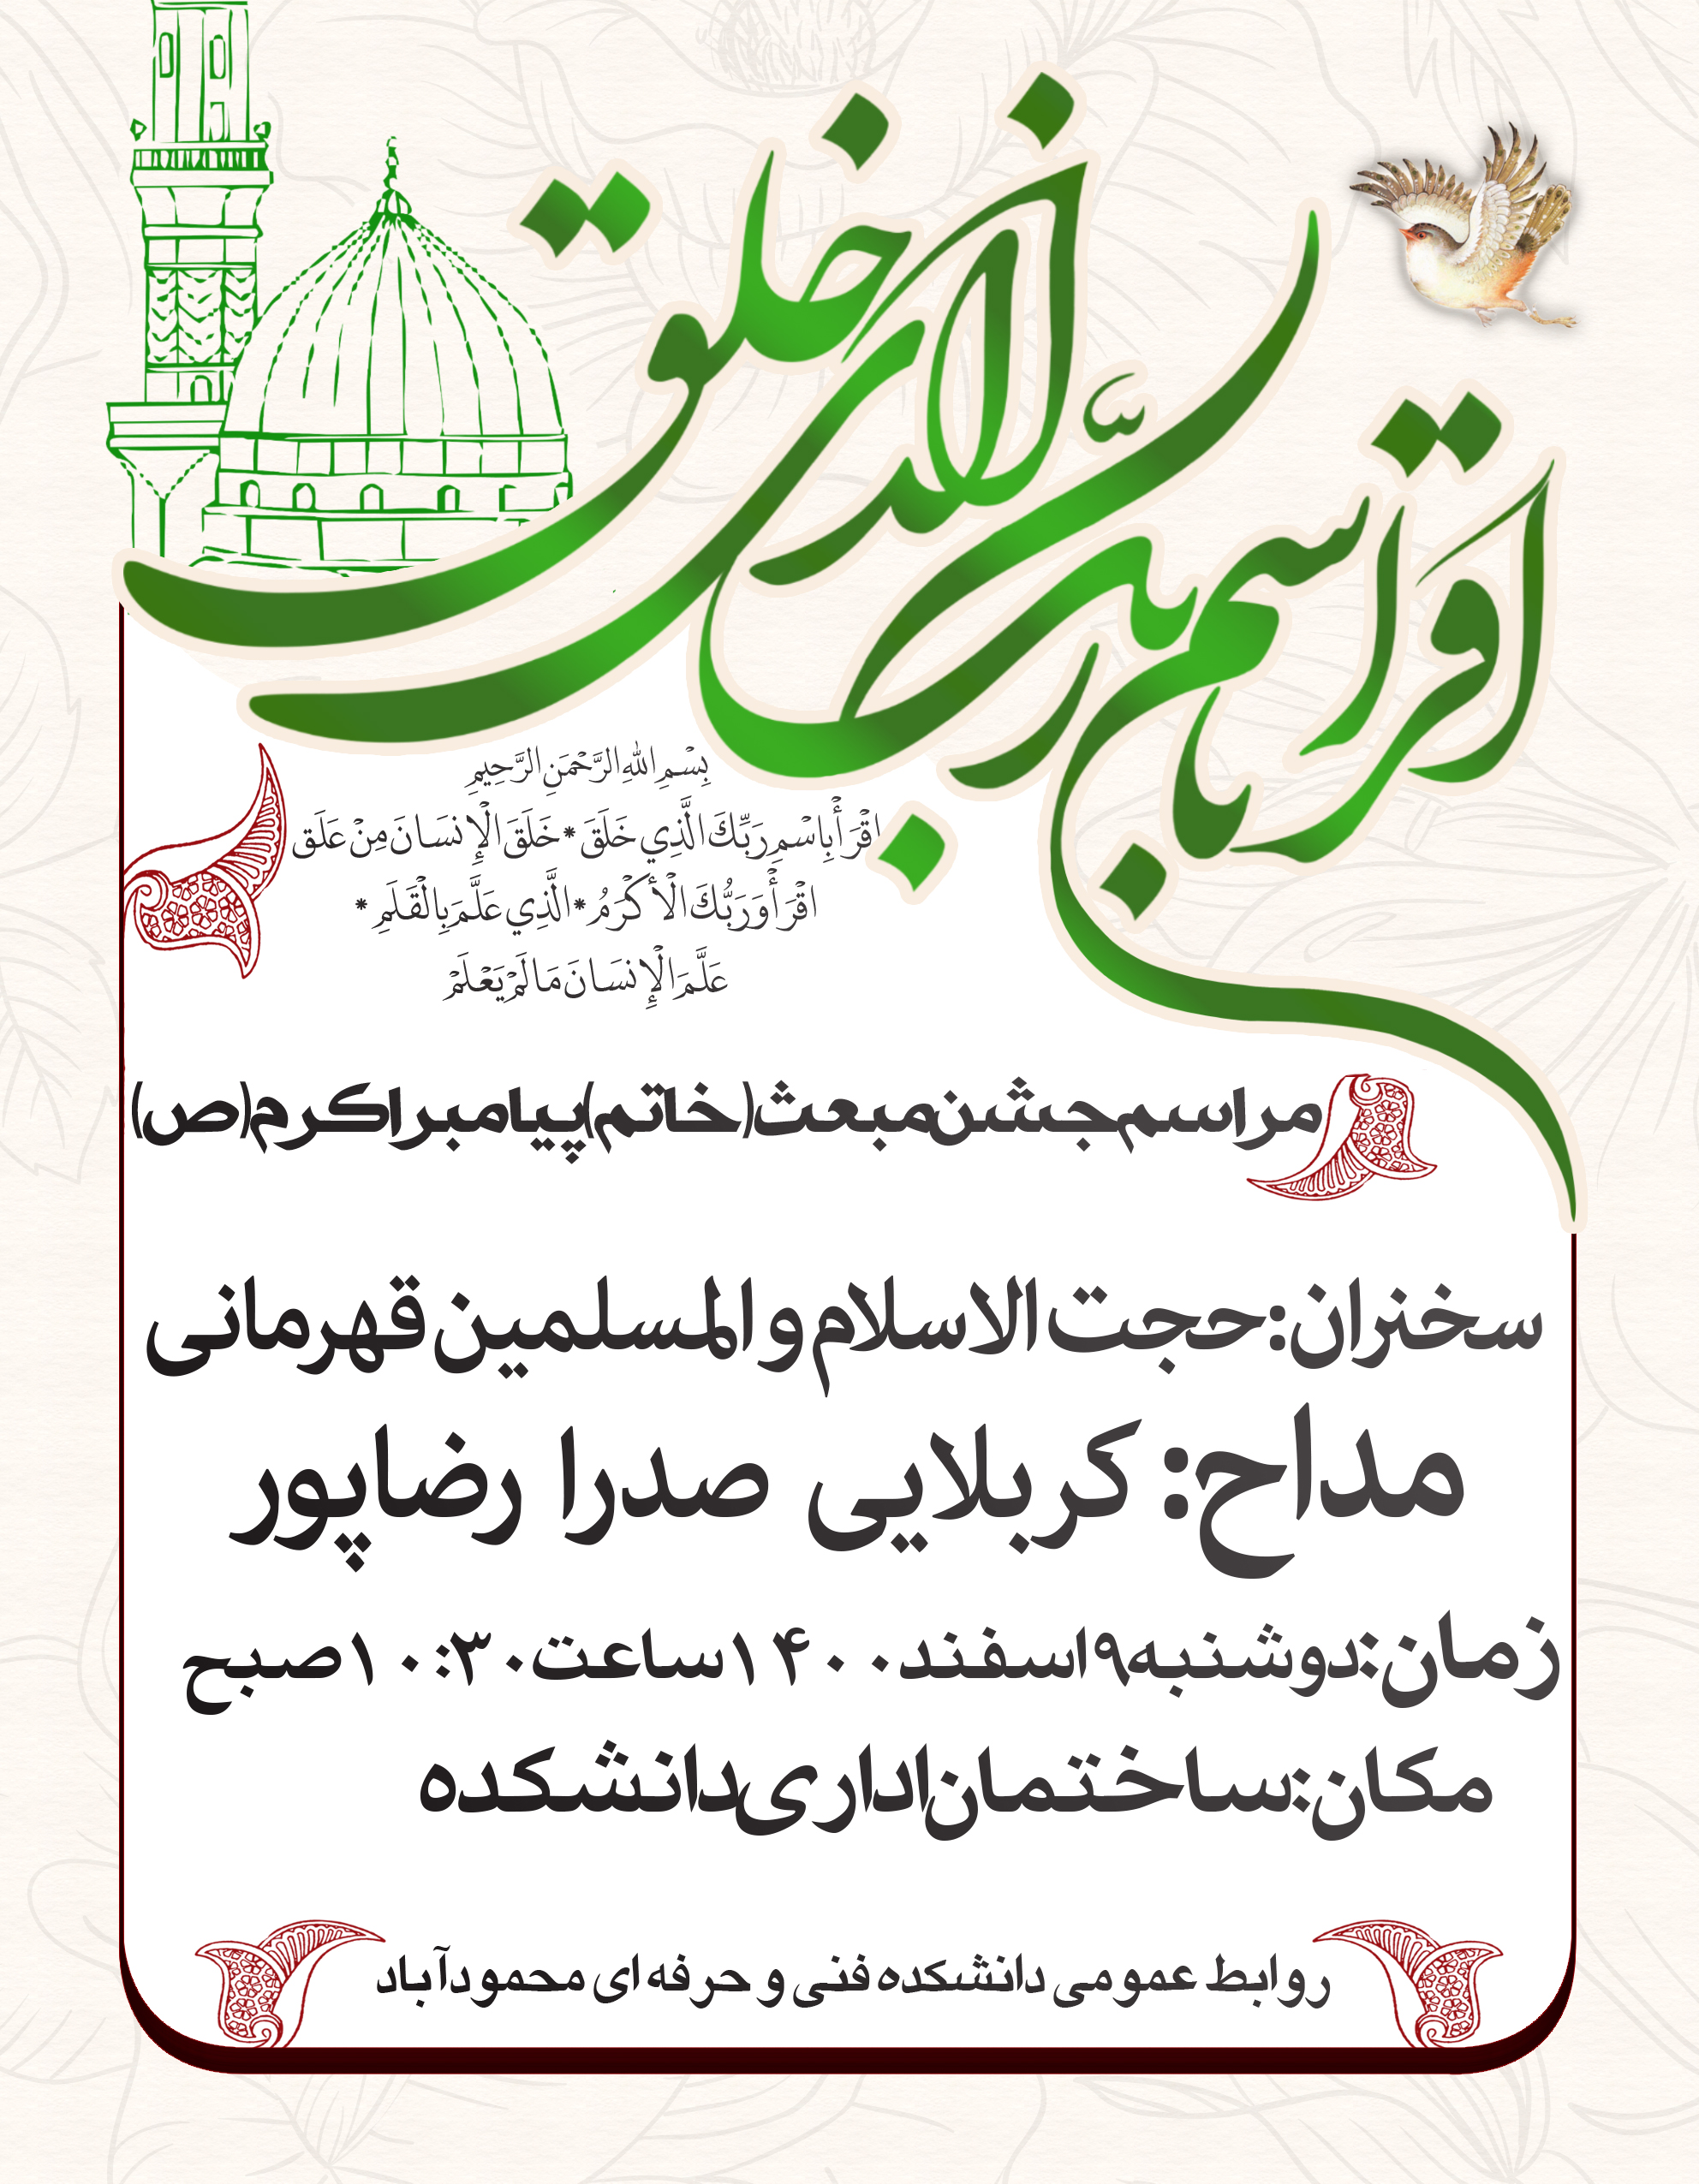 اقرا باسم ربّک الذی خلق
بِسْمِ اللهِ الرَّحْمَنِ الرَّحِيمِ
اقْرَأْ بِاسْمِ رَبِّكَ الَّذِي خَلَقَ * خَلَقَ الْإِنسَانَ مِنْ عَلَق
اقْرَأْ وَرَبُّكَ الْأَكْرَمُ * الَّذِي عَلَّمَ بِالْقَلَمِ *
عَلَّمَ الْإِنسَانَ مَا لَمْ يَعْلَمْ
مراسم جشن مبعث (خاتم) پیامبر اکرم (ص)
سخنران: حجت الاسلام و المسلمین قهرمانی
مداح: کربلایی صدرا رضاپور
زمان: دوشنبه ۹ اسفند ۱۴۰۰ ساعت ۱۰:۳۰ صبح
مکان: ساختمان اداری دانشکده
روابط عمومی دانشکده فنی و حرفه ای محمودآباد